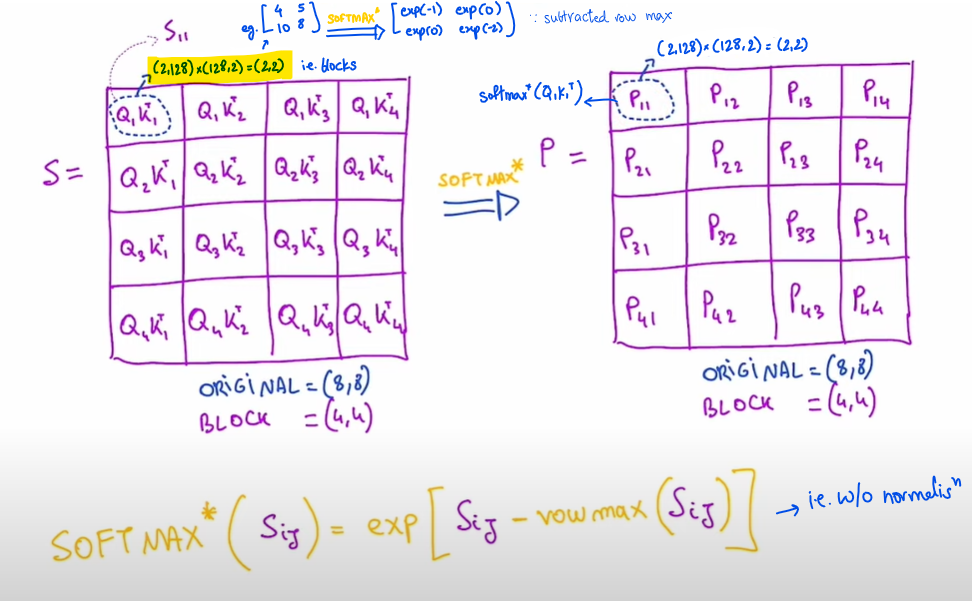 S₁₁
eg. [4 5
10 8] SOFTMAX* ⇒ [exp(-1) exp(0)
exp(0) exp(-2)] ∵ subtracted row max
(2,128)×(128,2)=(2,2) i.e. blocks
S=
Q₁K₁ᵀ Q₁K₂ᵀ Q₁K₃ᵀ Q₁K₄ᵀ
Q₂K₁ᵀ Q₂K₂ᵀ Q₂K₃ᵀ Q₂K₄ᵀ
Q₃K₁ᵀ Q₃K₂ᵀ Q₃K₃ᵀ Q₃K₄ᵀ
Q₄K₁ᵀ Q₄K₂ᵀ Q₄K₃ᵀ Q₄K₄ᵀ
ORIGINAL = (8,8)
BLOCK = (4,4)
SOFTMAX*
(2,128)×(128,2)=(2,2)
softmax*(Q₁K₁ᵀ)
P =
P₁₁ P₁₂ P₁₃ P₁₄
P₂₁ P₂₂ P₂₃ P₂₄
P₃₁ P₃₂ P₃₃ P₃₄
P₄₁ P₄₂ P₄₃ P₄₄
ORIGINAL = (8,8)
BLOCK = (4,4)
SOFTMAX*(Sᵢⱼ) = exp[Sᵢⱼ - rowmax(Sᵢⱼ)] → i.e. w/o normalisⁿ